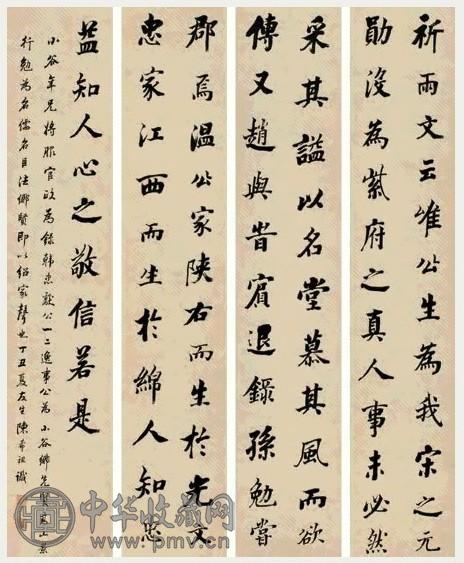 祈雨文云惟公生為我宋之元
勛沒為紫府之真人事未必然
采其謚以名堂慕其風而欲
傳又趙與旹賓退錄孫勉嘗
郡焉溫公家陝右而生於光文
忠家江西而生於綿人知忠
益知人心之敬信若是
小谷年兄將服官政為錄韓忠獻公一二逸事公為小谷鄉先賢高山景
行勉為名儒名臣法鄉賢即以紹家聲也丁丑夏左生陳希祖識
中华收藏网
www.pmv.cn